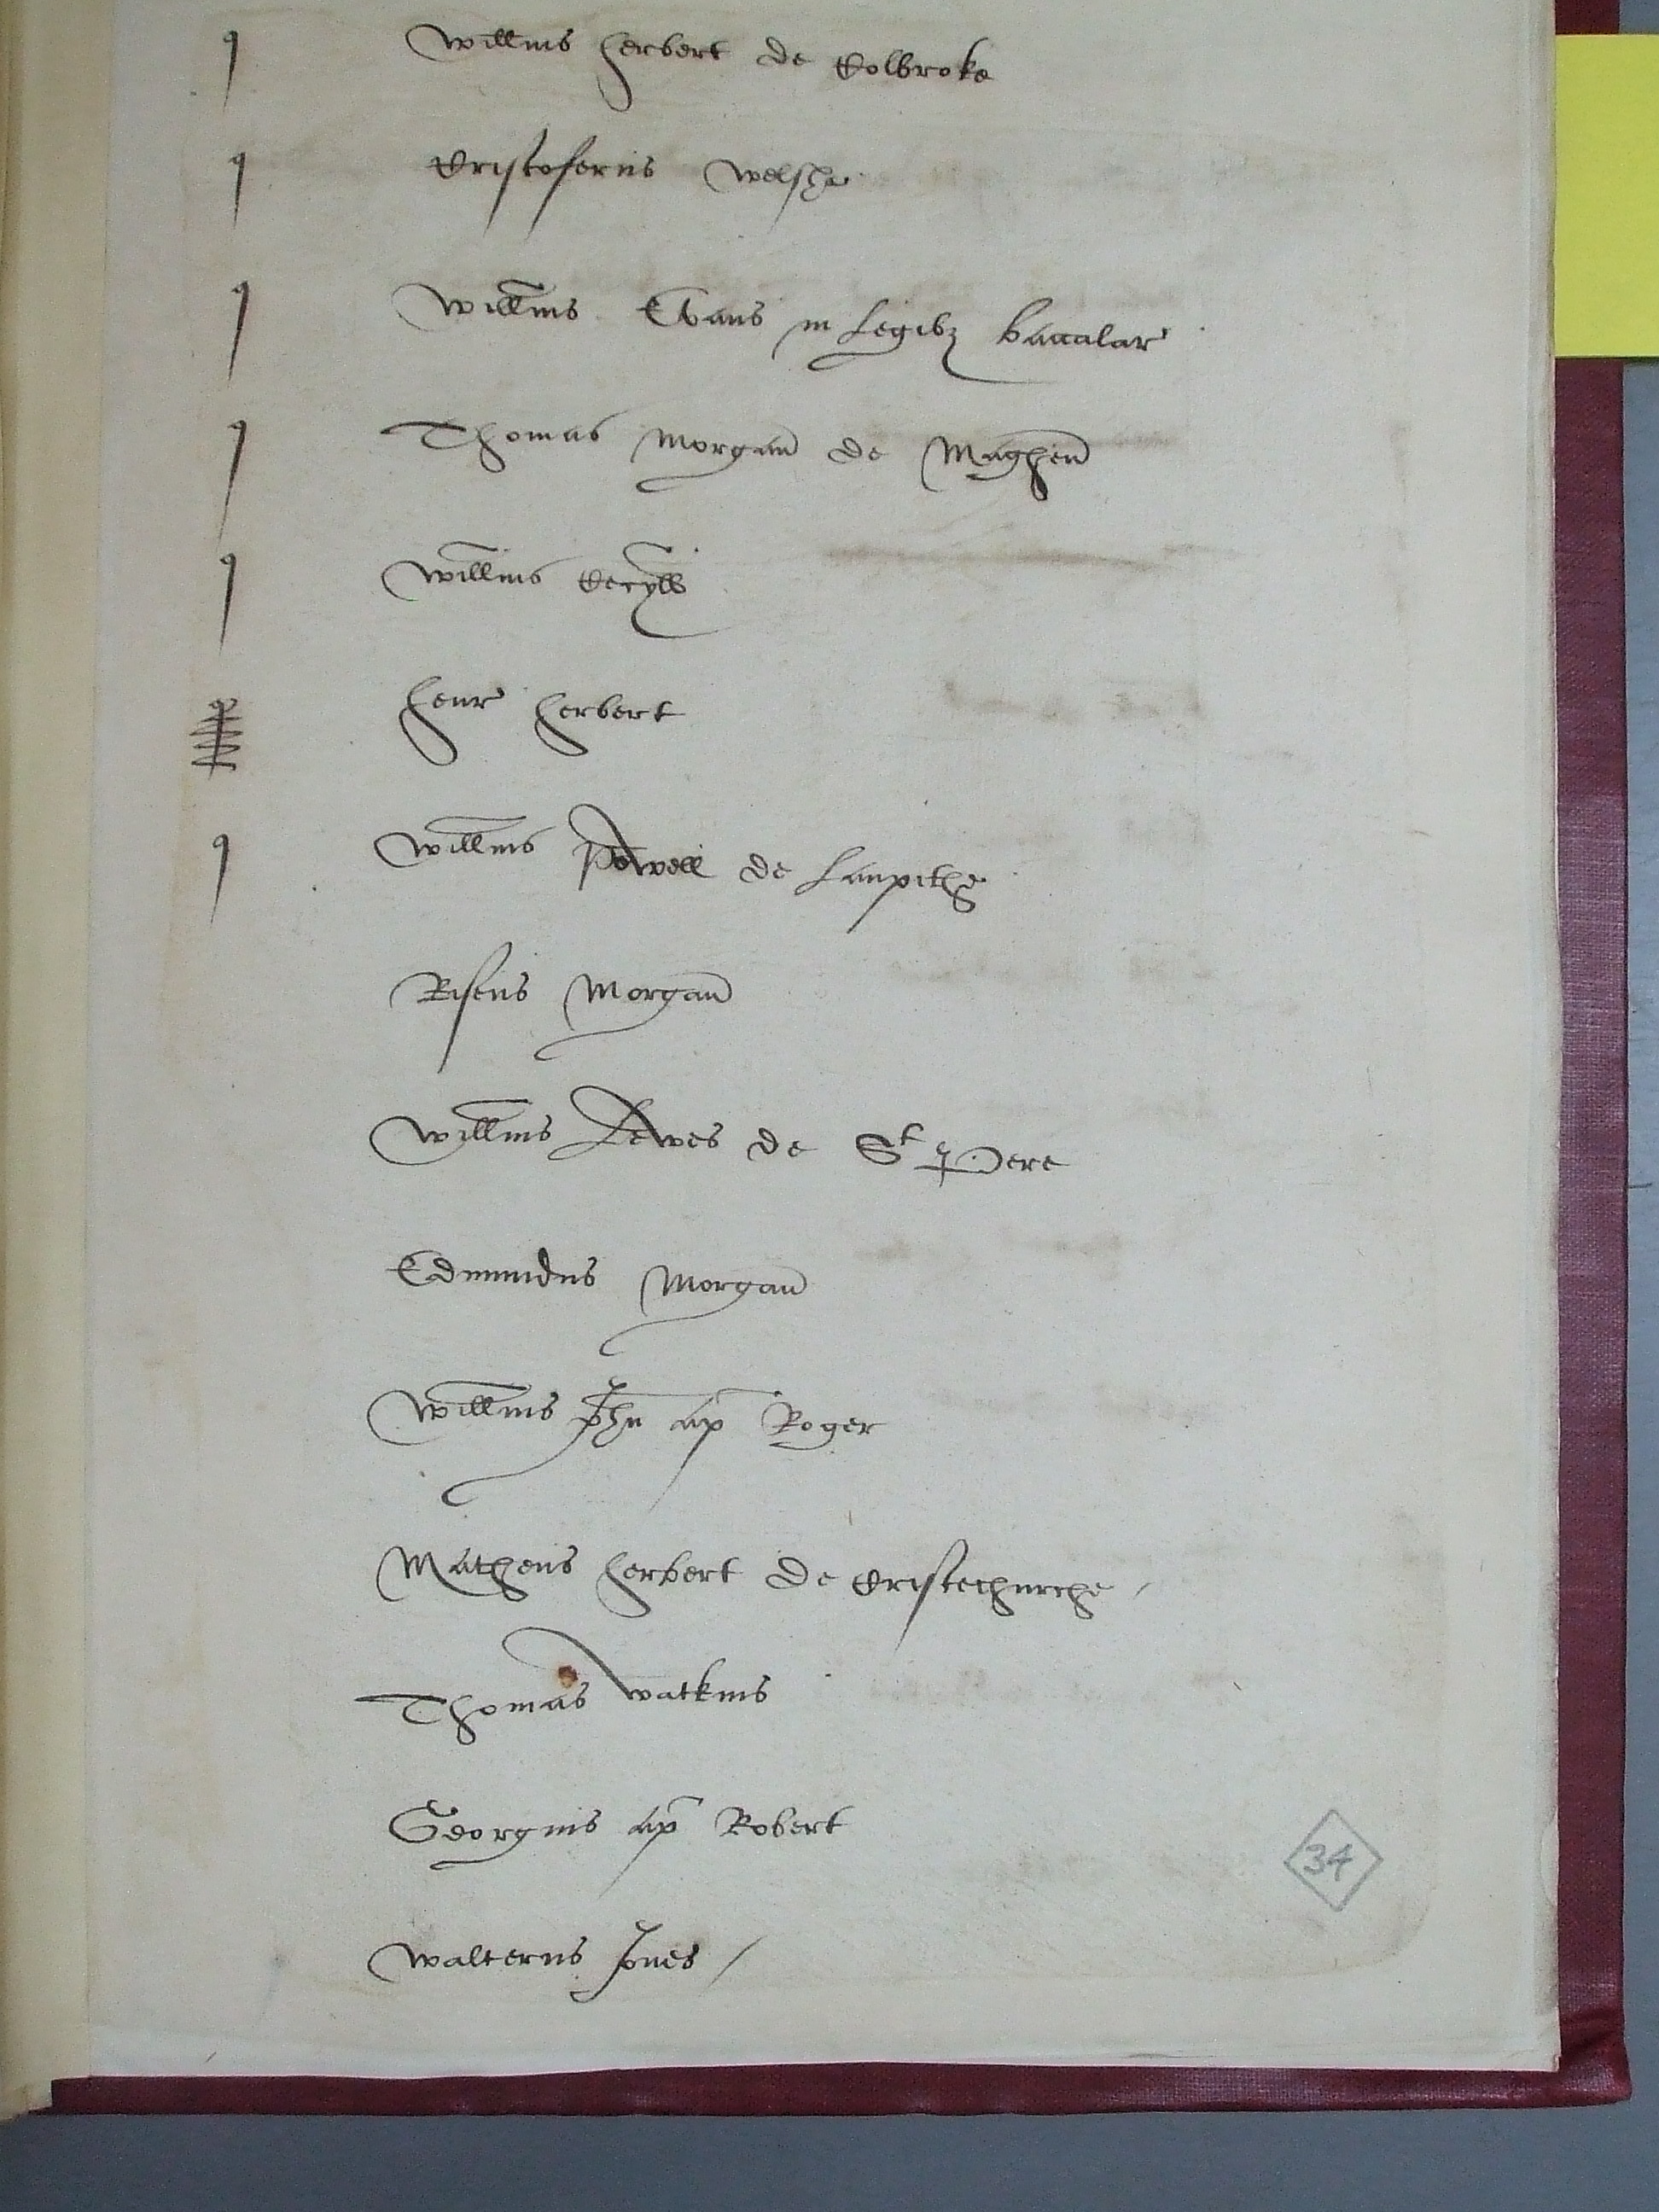 Willms herbert de Colbroke
Cristoferus Welshe
Willms Evans in Legibz baccalar
Thomas Morgan de Maghen
Willms Cecyll
henr herbert
Willms Powell de Lanpithe
Riseus Morgan
Willms Lewes de St Pere
Edmundus Morgan
Willms John ap Roger
Matheus herbert de Cristechurche
Thomas Watkins
Georgius ap Robert
34
Walterus Jones